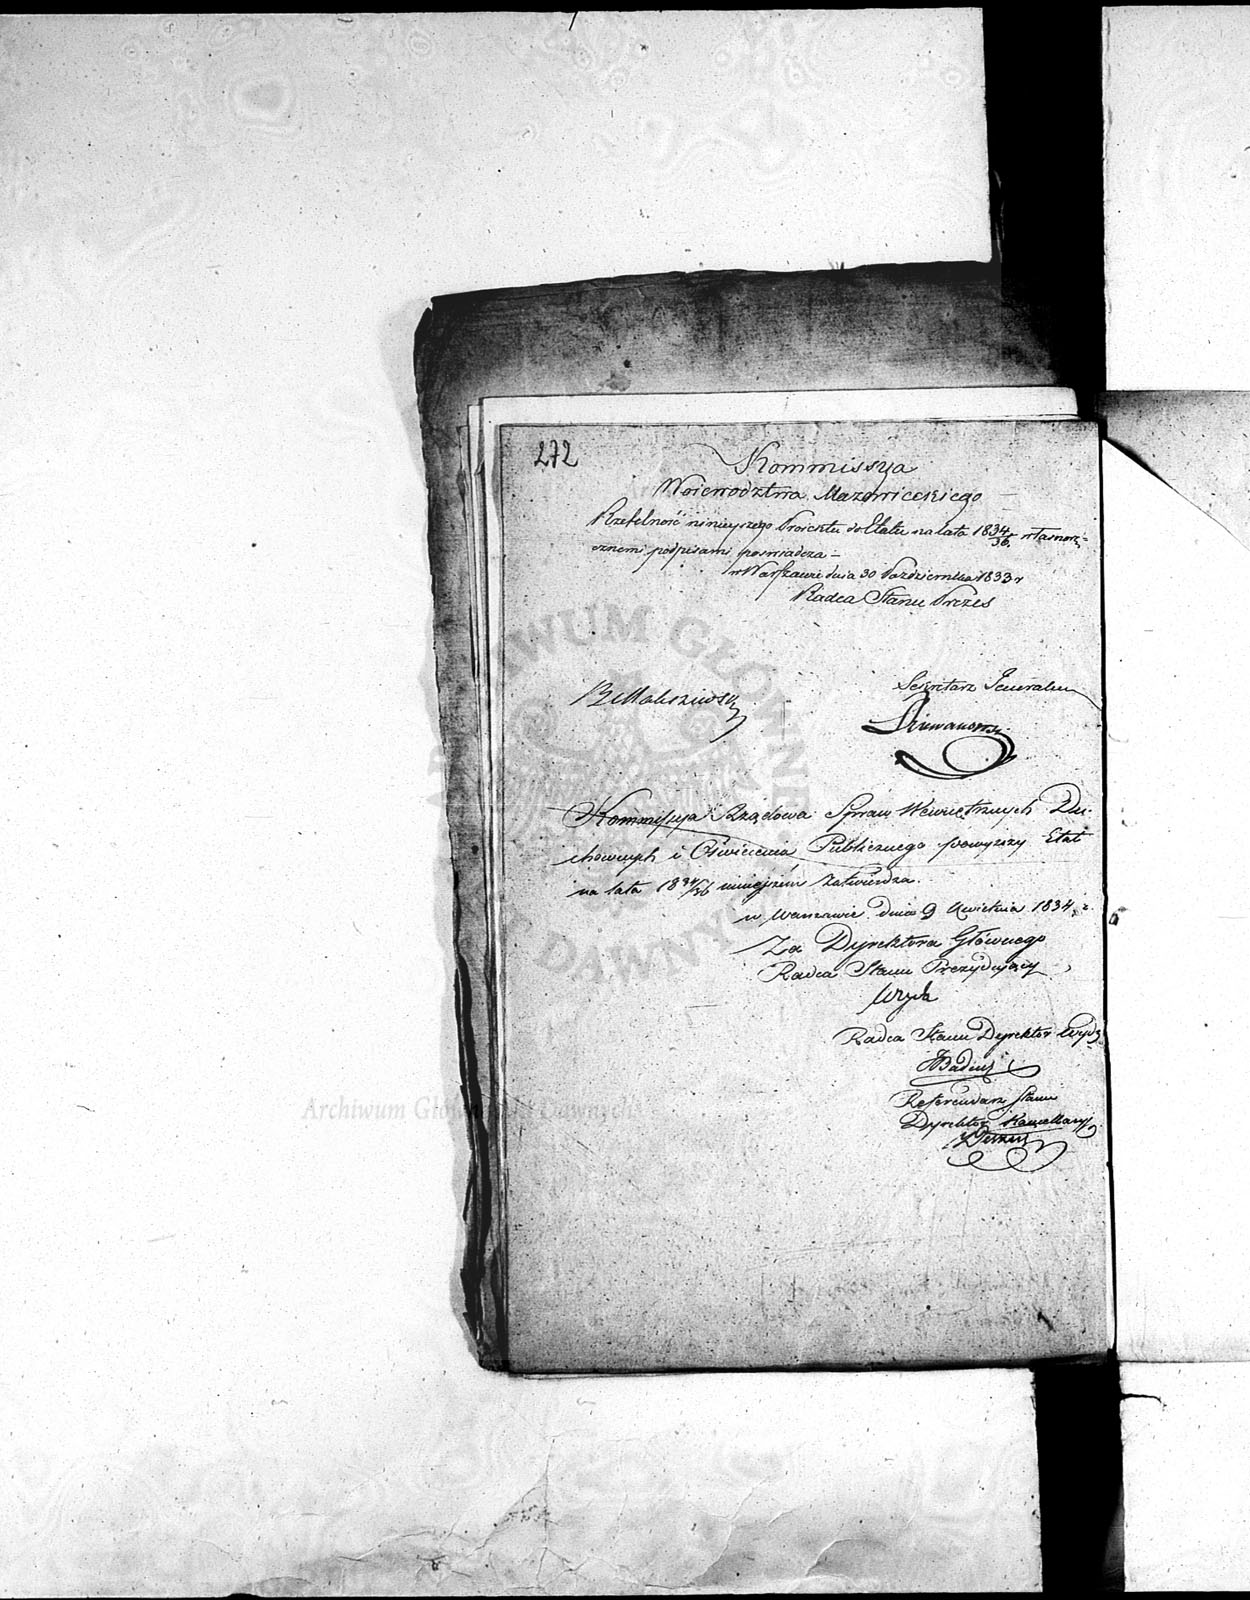 272
Kommissya
Woiewodztwa Mazowieckiego
Rzetelność ninieyszego Proiektu do Etatu na lata 1834/36. własnorę=
cznemi podpisami poswiadcza –
w Warszawie dnia 30 Października 1833 r
Radca Stanu Prezes
Sekretarz Generalny
Kommissya Rządowa Spraw Wewnętrznych Du-
chownych i Oświecenia Publicznego powyższy Etat
na lata 1834/36 niniejszém zatwierdza.
w Warszawie dnia 9 Kwietnia 1834. r.
Za Dyrektora Głównego
Radca Stanu Prezydujący
Radca Stanu Dyrektor Wydz
Referendarz Stanu
Dyrektor Kancellaryi
ARCHIWUM GŁÓWNE AKT DAWNYCH
Archiwum Główne Akt Dawnych